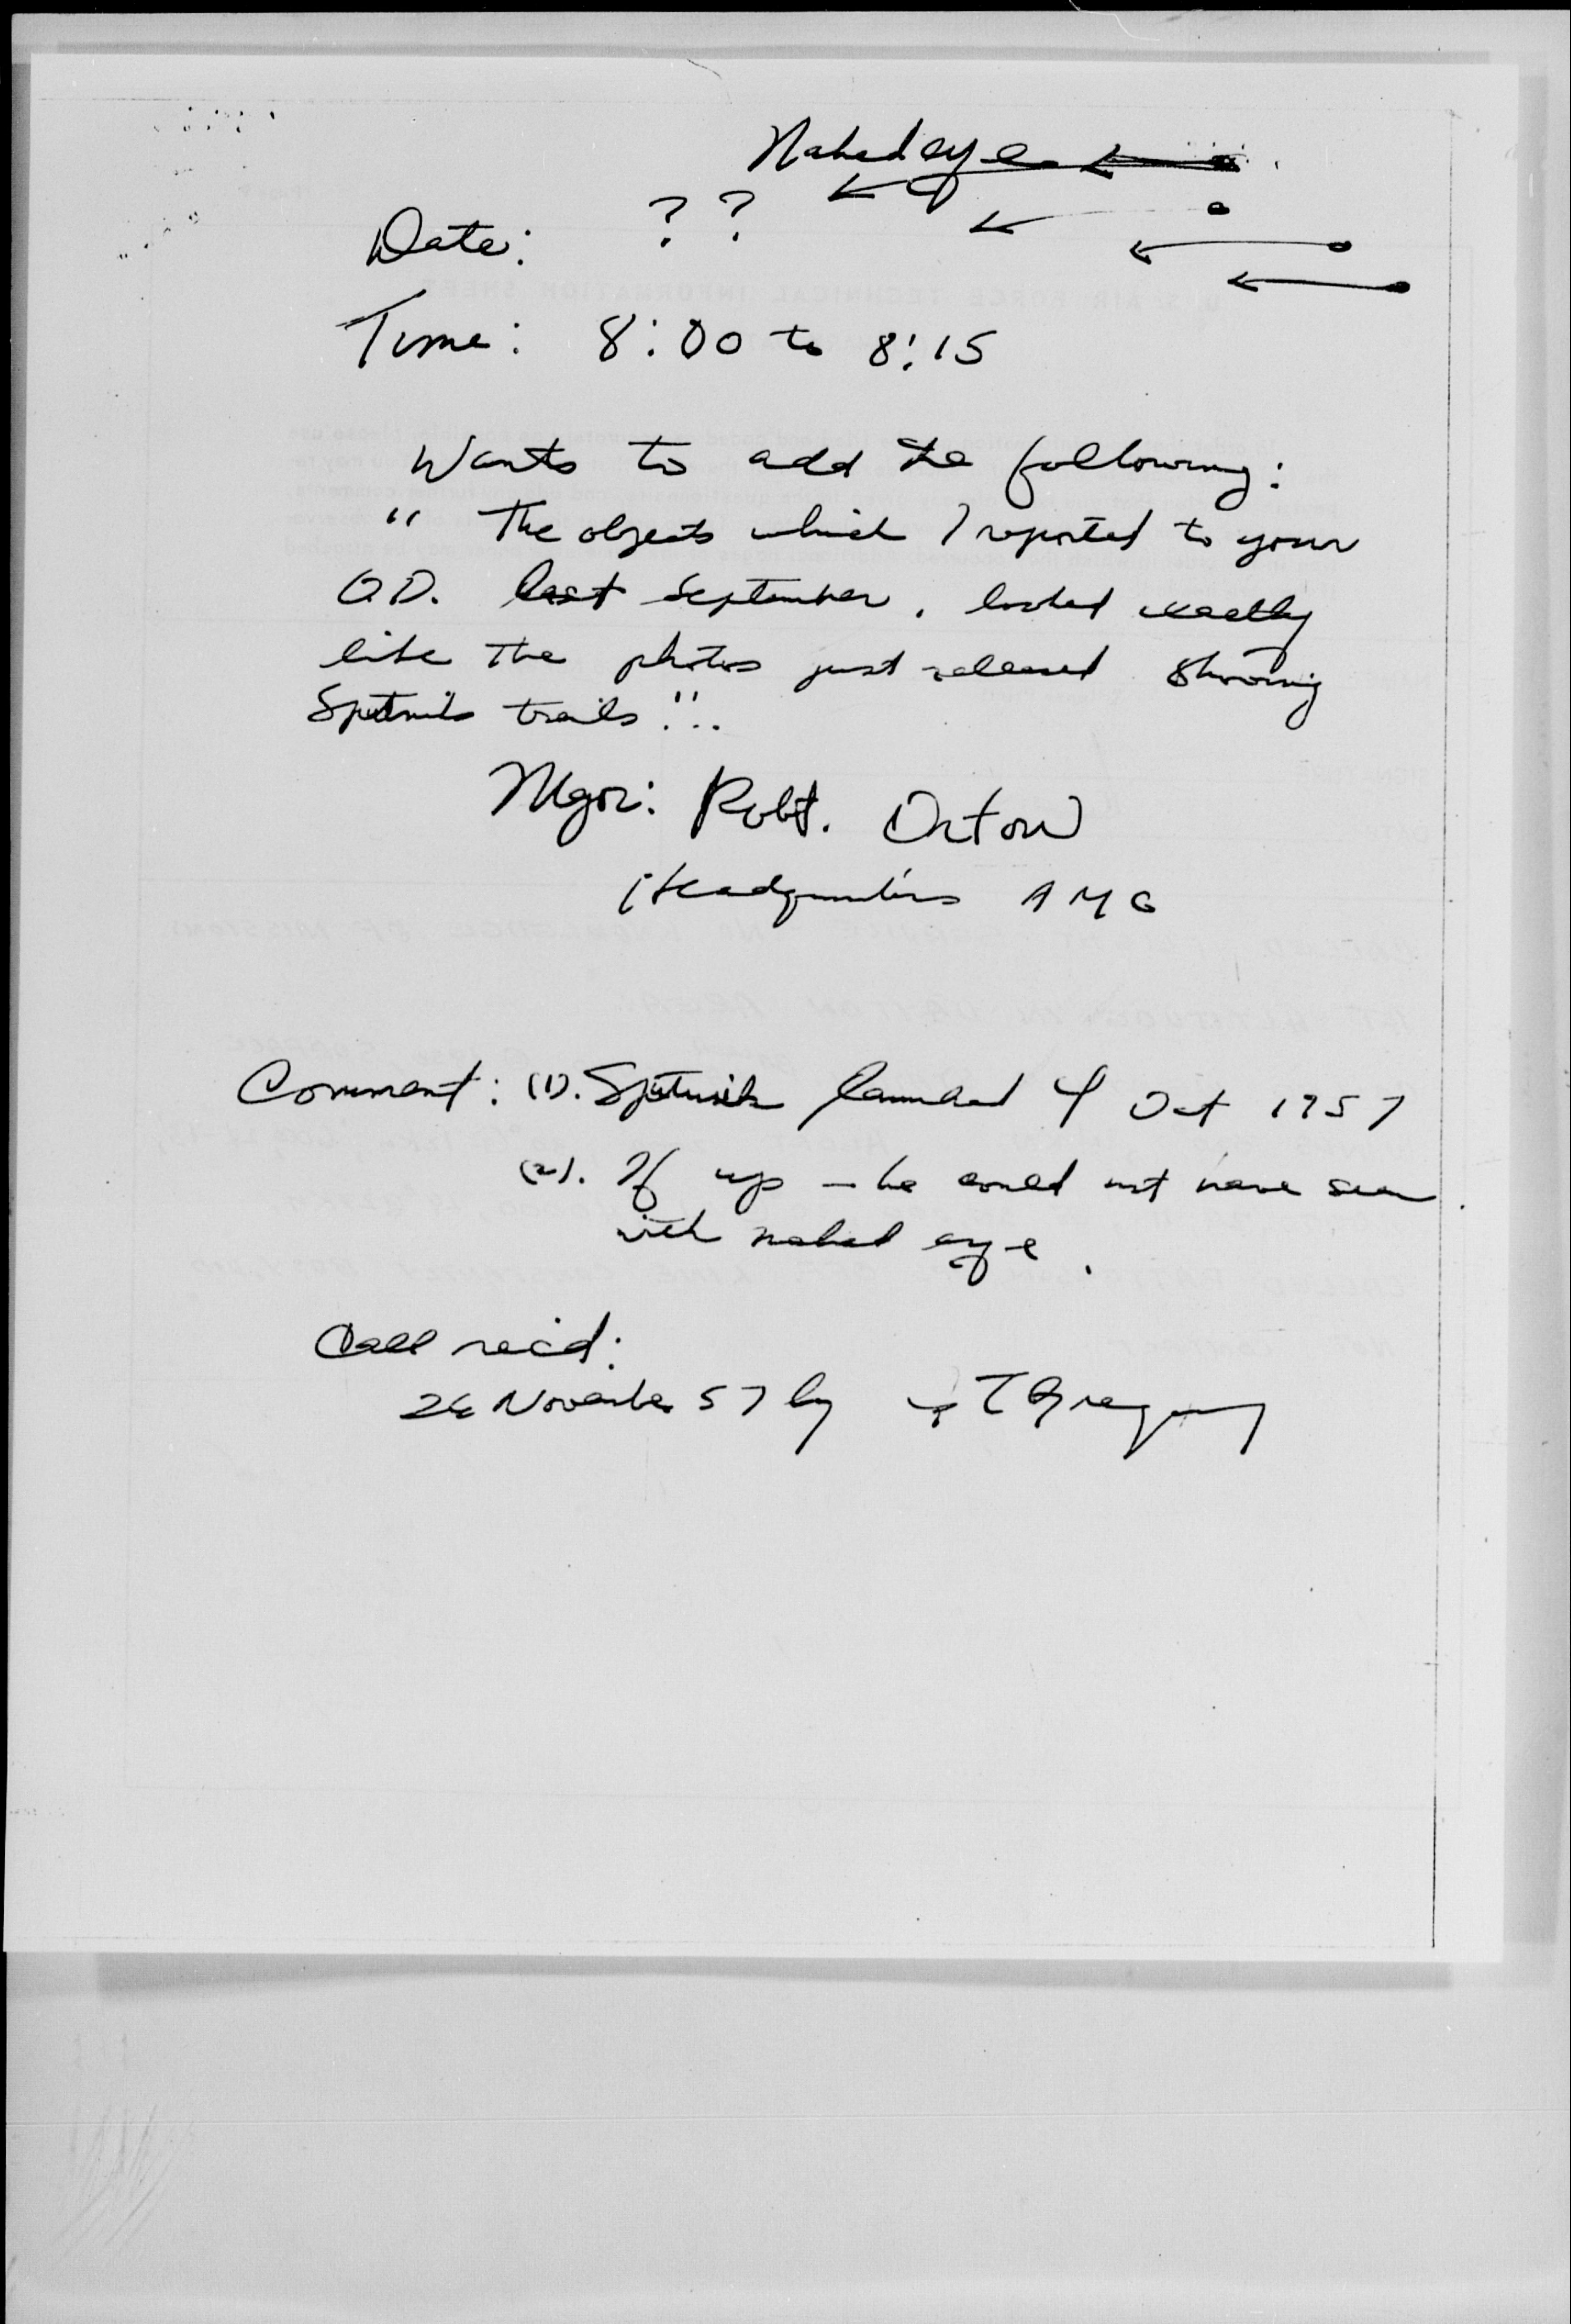 Naked eye
Date: ? ?
Time: 8:00 to 8:15
Wants to add the following:
" The objects which I reported to your
O.D. last September, looked exactly
like the photos just released showing
Sputnik trails!".
Mgr: Robt. Orton
Headquarters AMC
Comment: (1). Sputnik launched 4 Oct 1957
(2). If up – he could not have seen
with naked eye.
Call rec'd:
November 57 by T Gregory